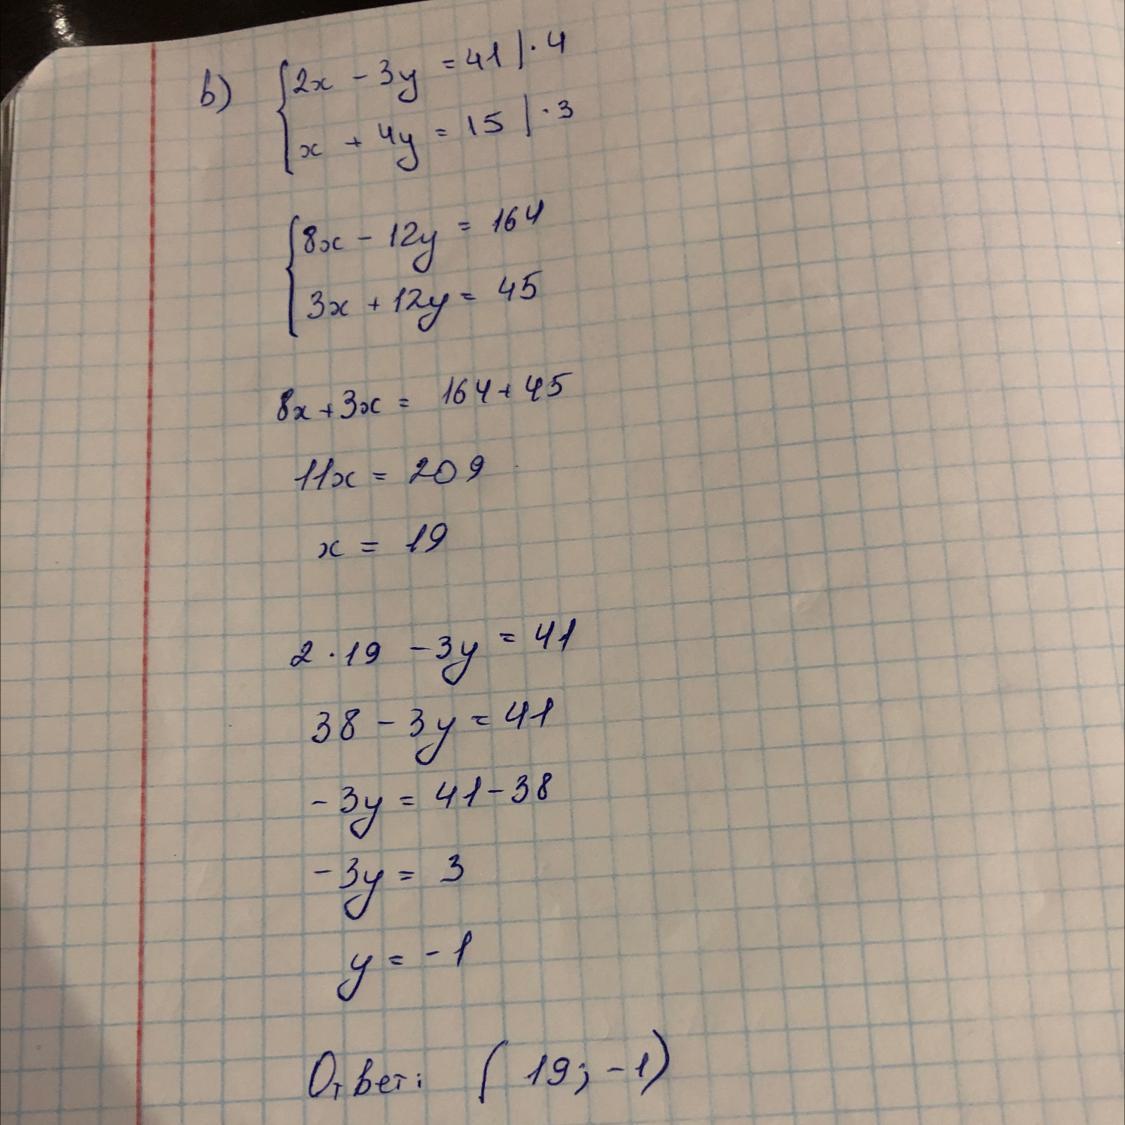 в) {2x - 3y = 41 | · 4
x + 4y = 15 | · 3
{8x - 12y = 164
3x + 12y = 45
8x + 3x = 164 + 45
11x = 209
x = 19
2 · 19 - 3y = 41
38 - 3y = 41
- 3y = 41 - 38
- 3y = 3
y = - 1
Ответ: (19; -1)